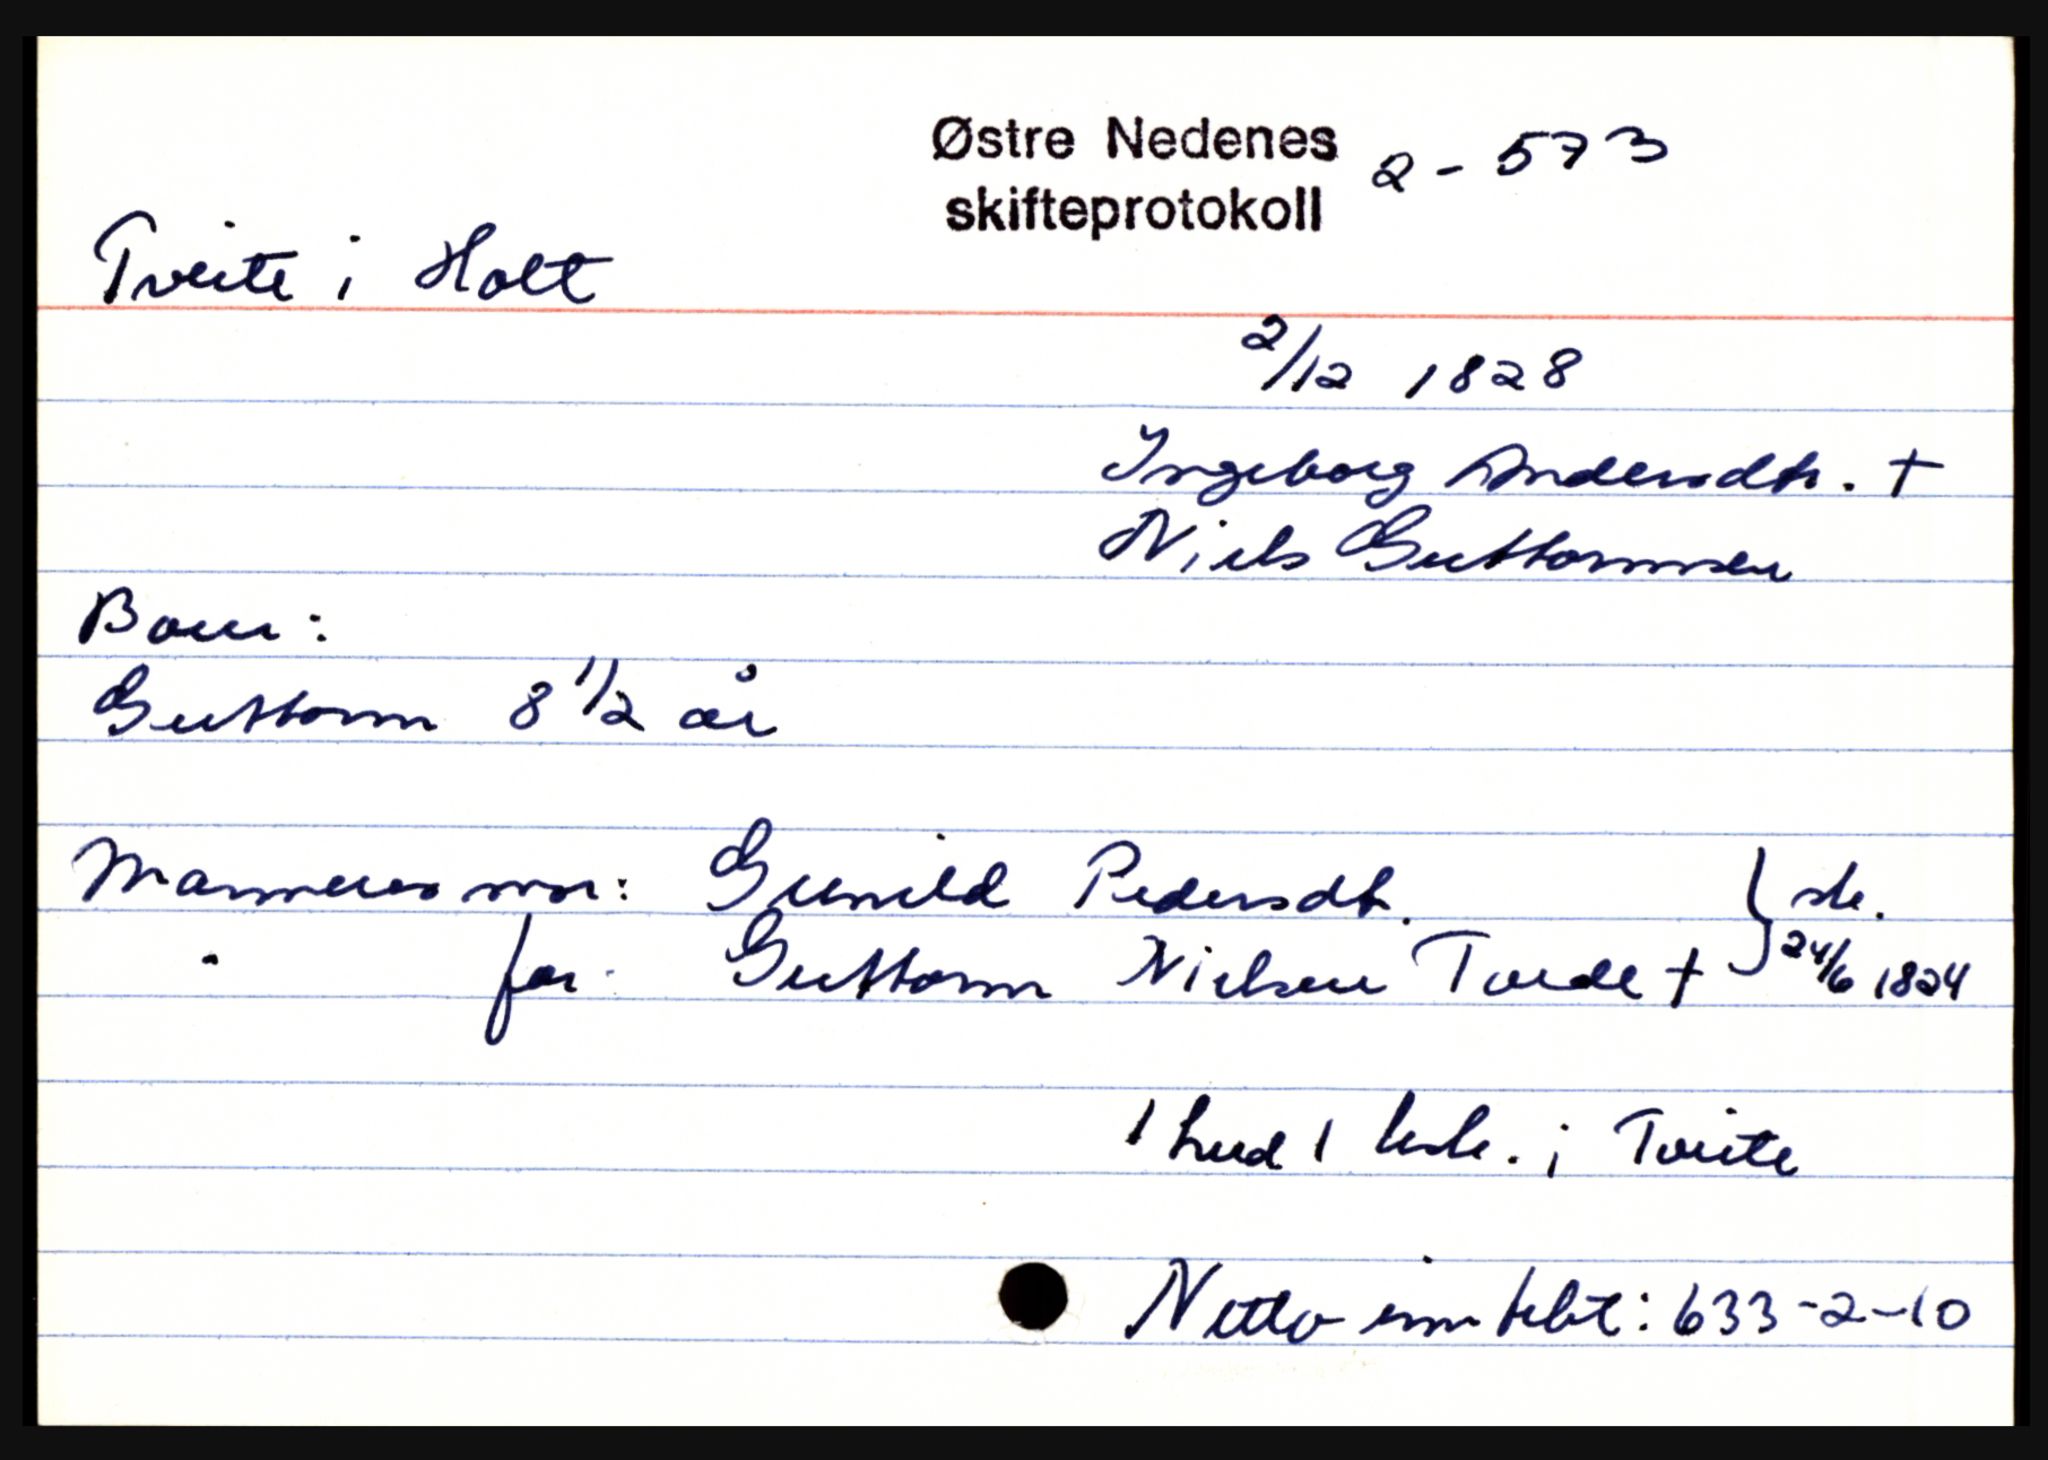 Østre Nedenes 2-573
skifteprotokoll
Tveite i Holt
2/12 1828
Ingeborg Andersdtr. †
Niels Guttormsen
Barn:
Guttorm 8 1/2 år
Mannens mor: Gunild Pedersdt.
" far: Guttorm Nielsen Tvede † } sk. 24/6 1824
1 hud 1 i Tveite
Netto innbebt: 633-2-10